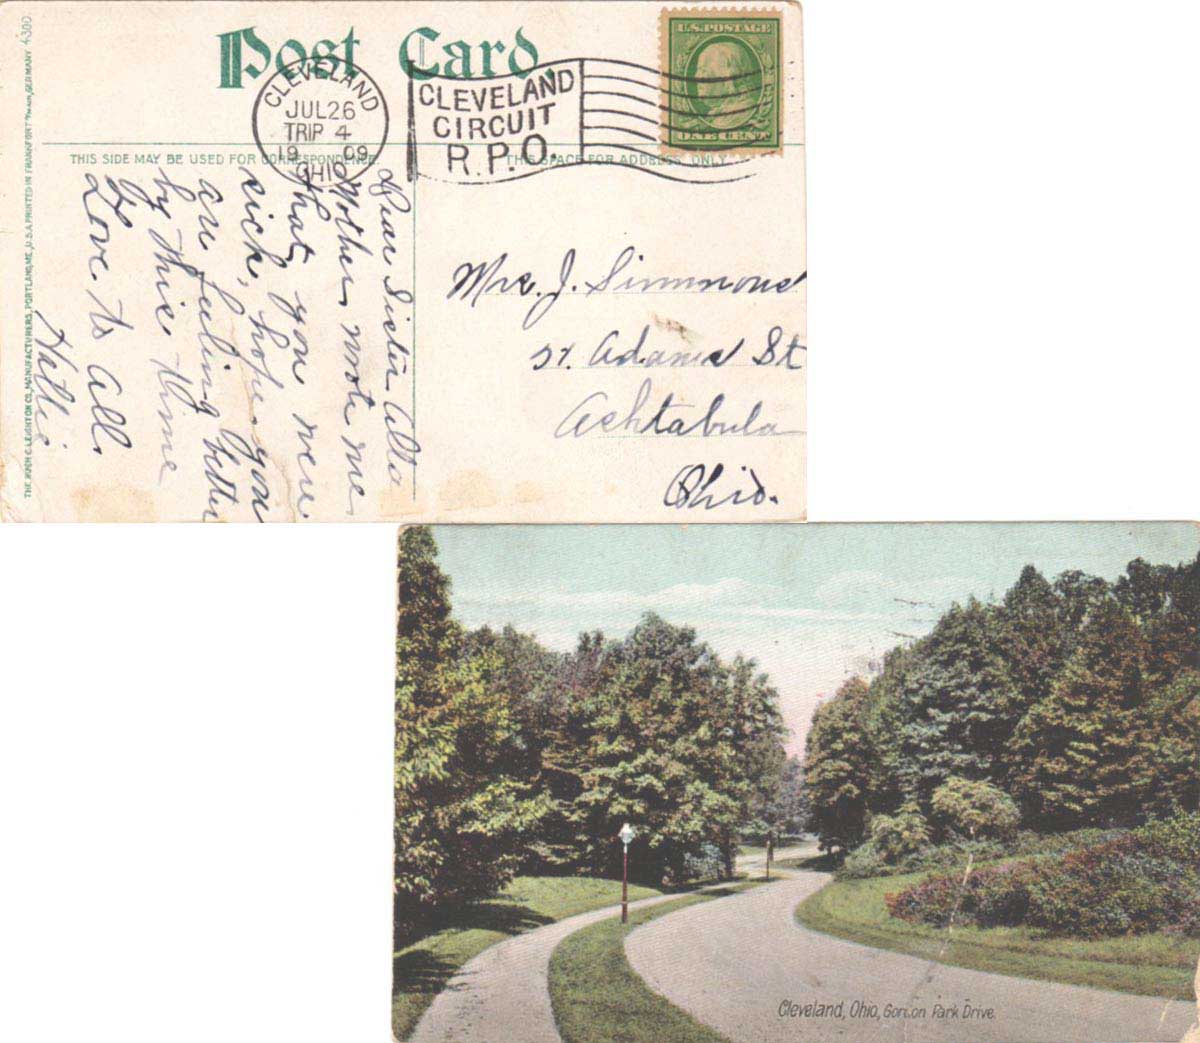 Post Card.
CLEVELAND
JUL 26
TRIP 4
19 09
OHIO
CLEVELAND
CIRCUIT
R.P.O.
U.S. POSTAGE
ONE CENT
THIS SIDE MAY BE USED FOR CORRESPONDENCE.
THIS SPACE FOR ADDRESS ONLY
THE HUGH C. LEIGHTON CO., MANUFACTURERS, PORTLAND, ME., U.S.A. PRINTED IN FRANKFORT GERMANY 4300
Dear Sister Alta
Mother wrote me
that you were
sick, hope you
are feeling better
by this time
Love to all.
Hattie
Mrs. J. Simmons
Adams St
Ashtabula
Ohio.
Cleveland, Ohio, Gordon Park Drive.